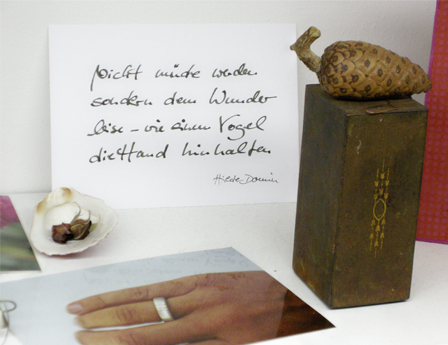 Nicht müde werden
sondern dem Wunder
leise – wie einem Vogel
die Hand hinhalten
Hilde Domin